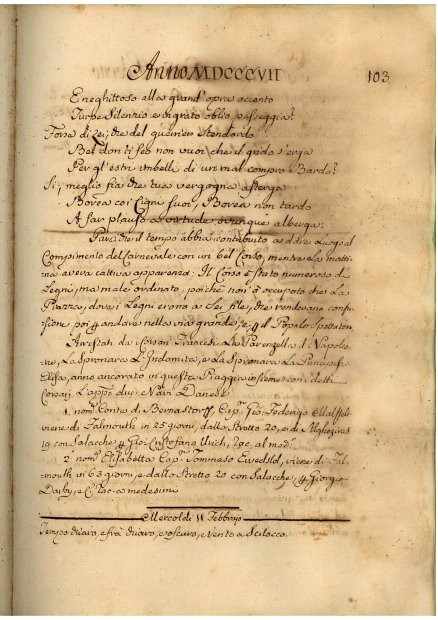 Anno MDCCCVII
103
E neghittoso alla grand'opra accanto
Turpe Silenzio e ingrato oblio passeggia?
Forsa di Lei, che del guerriero Stendardo
Bel don ti feo non vuoi che il grido s'erga
Per gl'estri imbelli di un mal compro Bardo?
Si, meglio fia che tua vergogna asterga
Borea coi Cigni suoi, Borea non tardo
A far plauso a virtude ovunque alberga.
Pare che il tempo abbia contribuito a dare luogo al
Compimento del Carnevale con un bel Corso, mentre la matti-
na aveva cattiva apparenza; Il Corso è stato numeroso di
Legni, ma male ordinato, poichè non à occupato che La
Piazza, dove i Legni erano a Sei file, che rendevano confu-
sione per andare nella via grande, e il Popolo Spettatore.
Arrestati da Corsari Francesi La Parenzella Napole-
ne, La Speronara L'Indomita, e La Speronara La Principessa
Elisa, anno ancorato in questa Piaggia insieme con i detti
Corsari. L'appo due Navi Danesi
1. nom. Conte di Bernstorff, Cap. Gio: Federigo
viene di Falmouth in 25 giorni, dallo Stretto 20, e di Algheziras
19 con Salacche Gio: Cristofano Ulrich,
2. nom. Elisabetta Cap. Tommaso viene di Fal-
mouth in 63 giorni, e dallo Stretto 20 con Salacche, Giorgio
Darby, e C. medesimi
Mercoldì 11 Febbrajo
Tempo chiaro, e frà chiaro, e oscuro, e vento a Scilocco.